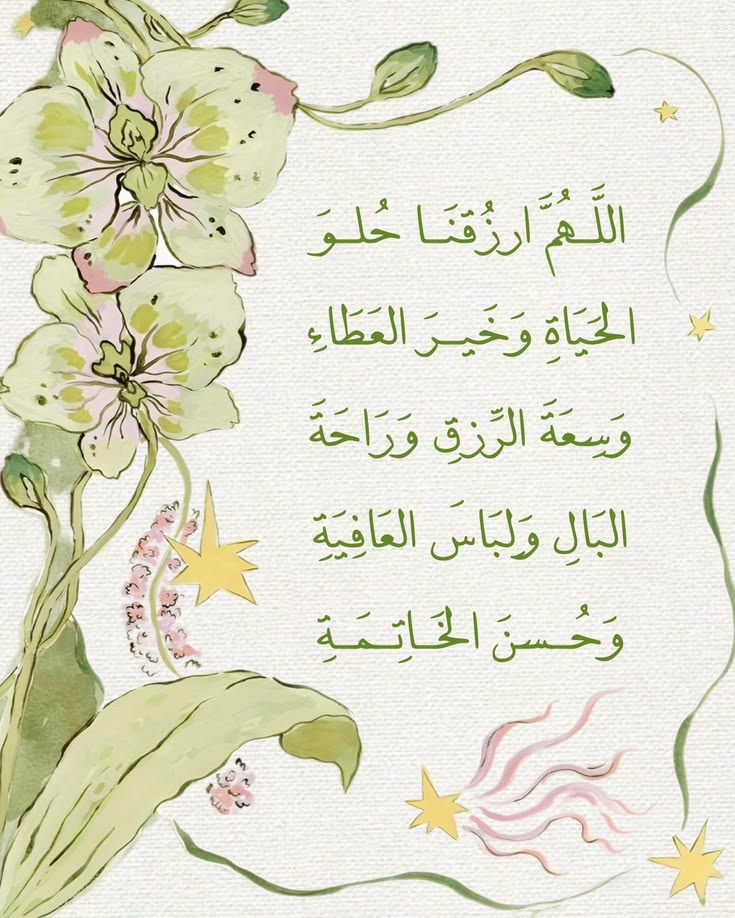 اللَّهُمَّ ارزُقنَا حُلوَ
الحَيَاةِ وَخَيرَ العَطَاءِ
وَسِعَةَ الرِّزقِ وَرَاحَةَ
البَالِ وَلِبَاسَ العَافِيَةِ
وَحُسنَ الخَاتِمَةِ